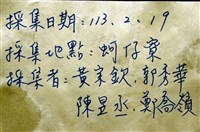 採集日期：113.2.19
採集地點：蚵仔寮
採集者：黃宗欽.郭秀華
陳昱丞.鄭喬嶺